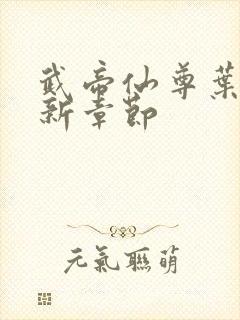 武帝仙尊葉
新章節
元氣聯萌